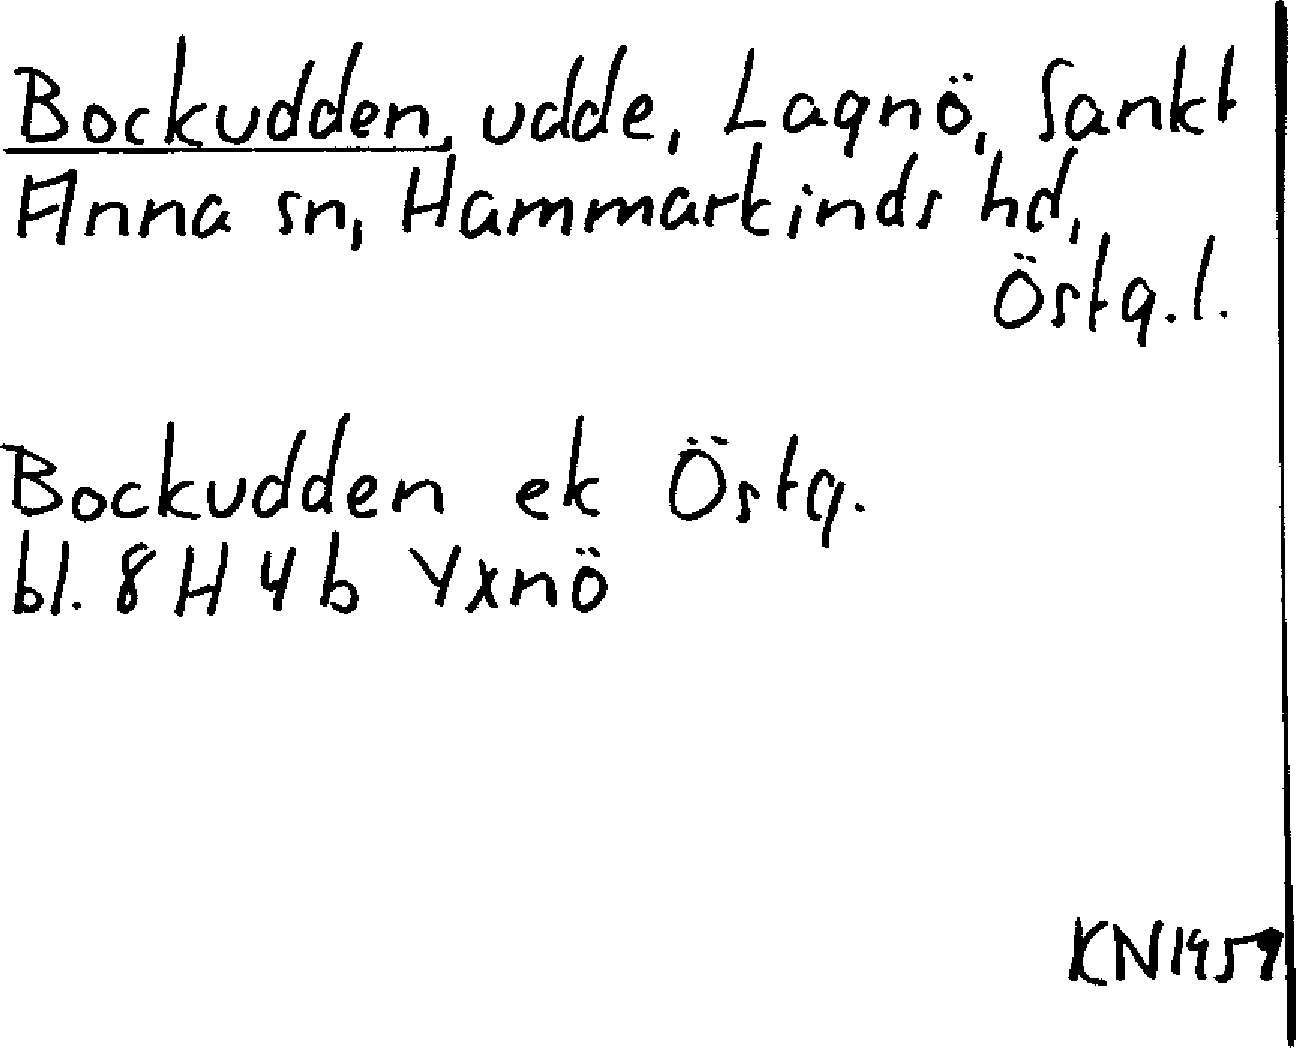 Bockudden, udde, Lagnö, Sankt
Anna sn, Hammarkinds hd,
Östg.l.
Bockudden ek Östg.
bl. 8 H 4 b Yxnö
KN1959